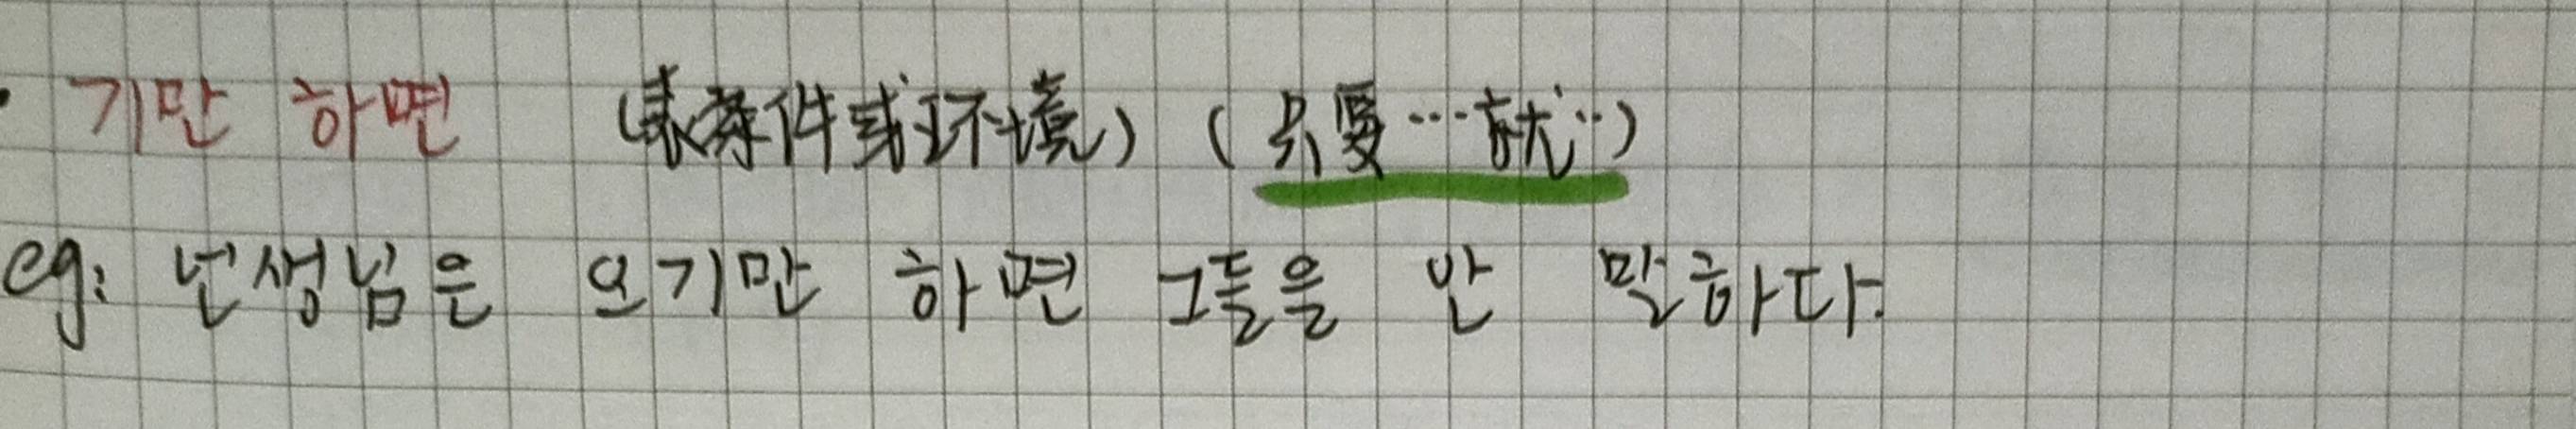 · 기만 하면 (表条件或环境) (只要…就…)
eg: 넌생님은 오기만 하면 그들을 안 말하다.